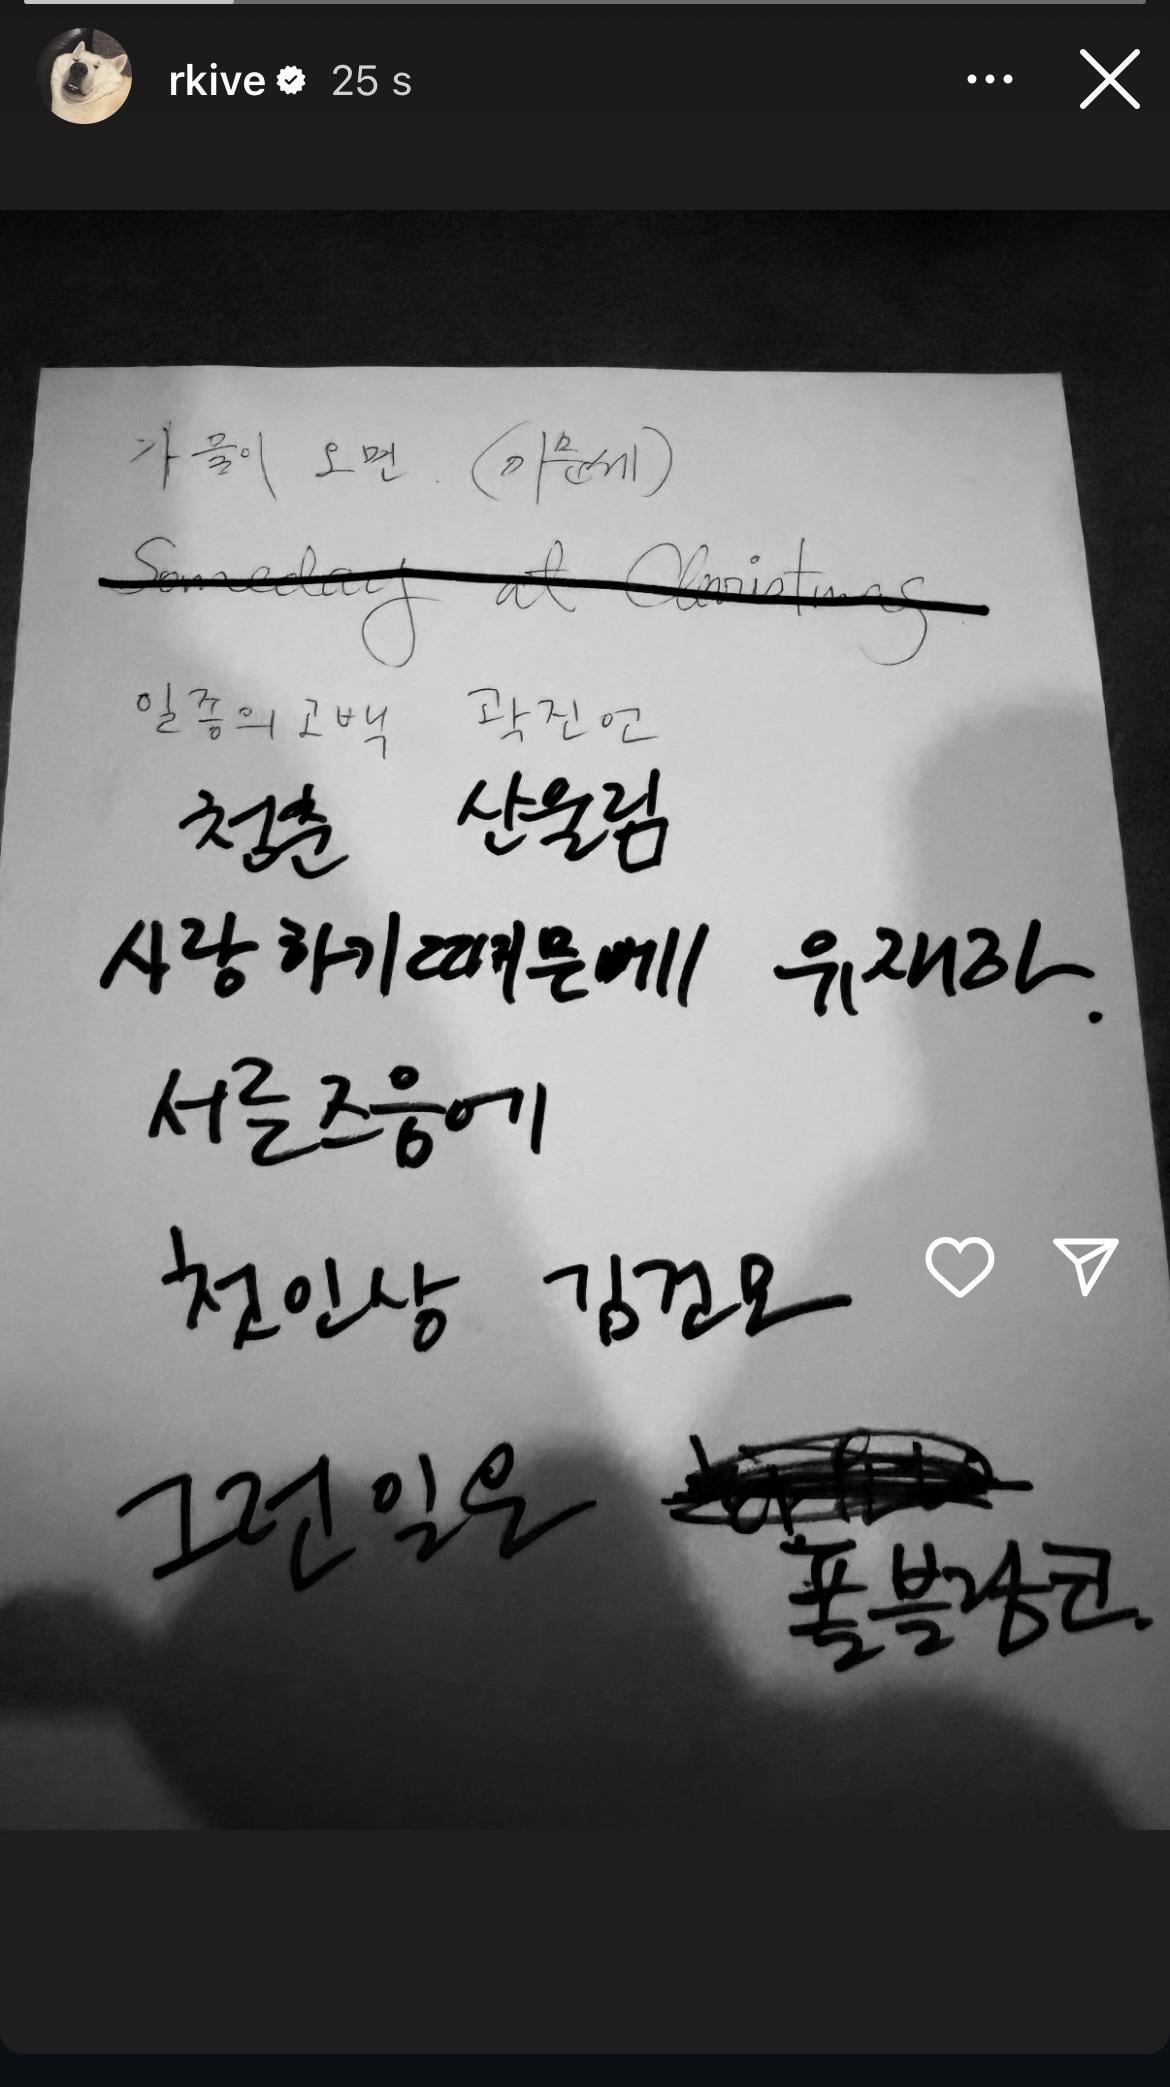 rkive 25 s
가을이 오면. (이문세)
Someday at Christmas
일종의 고백 곽진언
청춘 산울림
사랑하기때문에 유재하.
서른즈음에
첫인상 김건모
그런일은
폴블랑코.